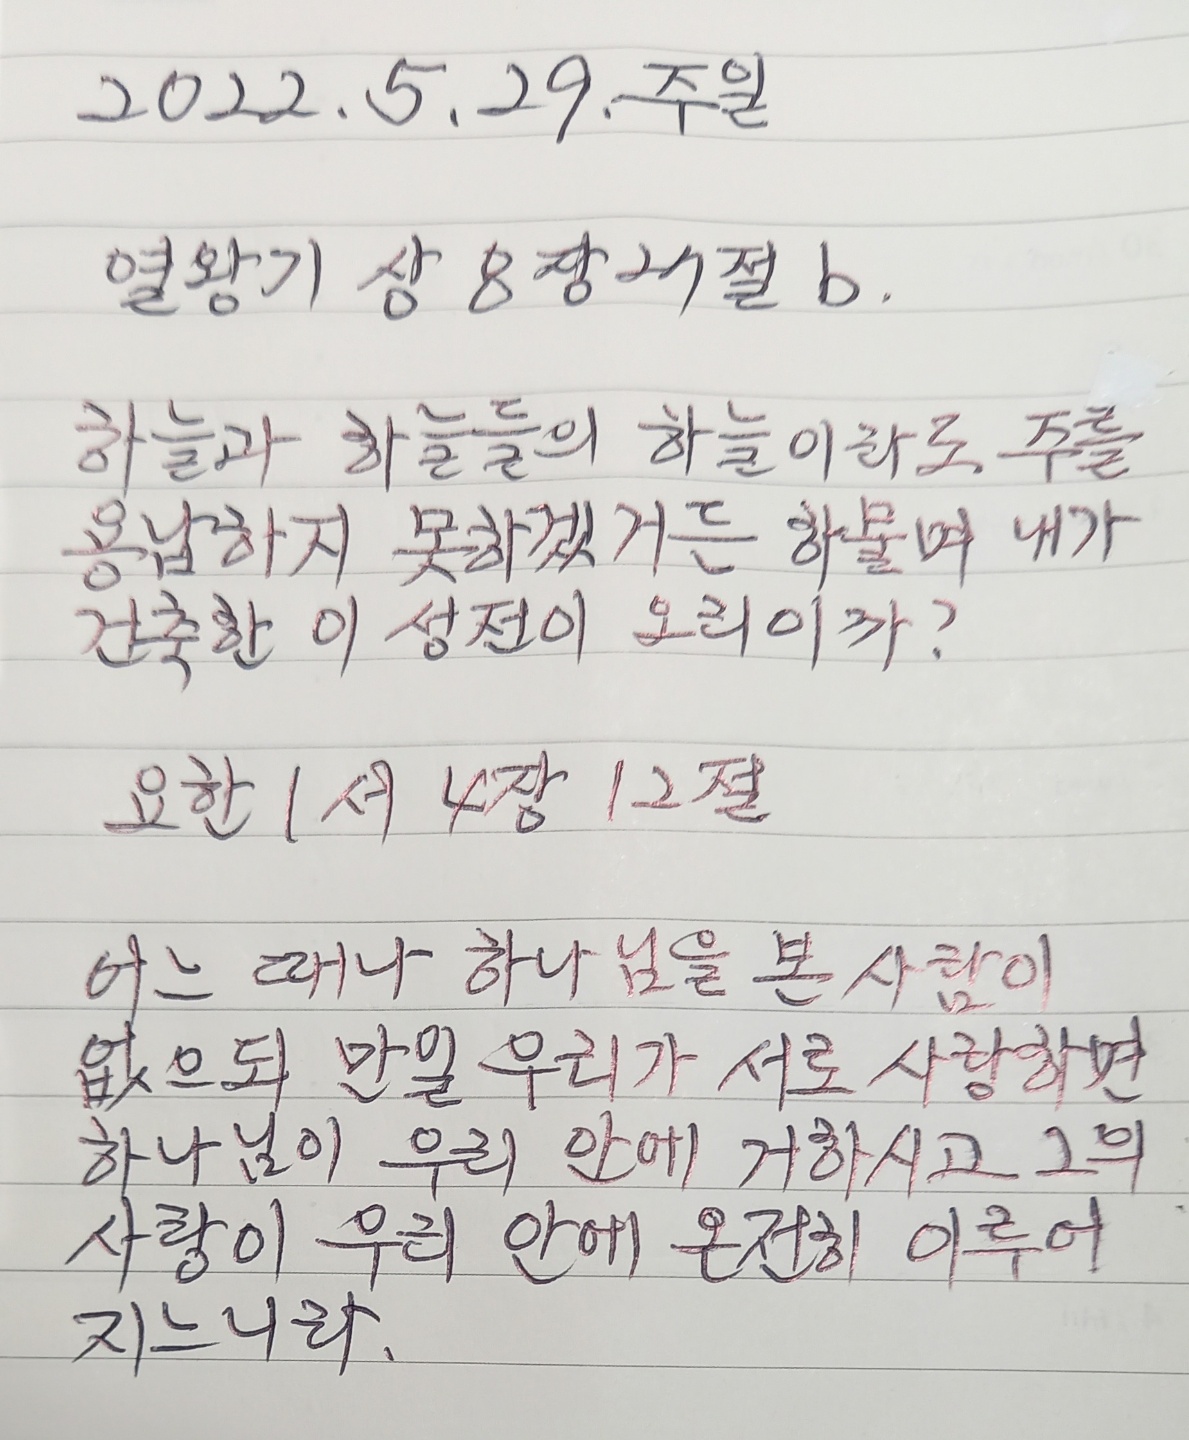 2022.5.29.주일
열왕기 상 8장 27절 b.
하늘과 하늘들의 하늘이라도 주를
용납하지 못하겠거든 하물며 내가
건축한 이 성전이 오리이까?
요한1서 4장 12절
어느 때나 하나님을 본 사람이
없으되 만일 우리가 서로 사랑하면
하나님이 우리 안에 거하시고 그의
사랑이 우리 안에 온전히 이루어
지느니라.